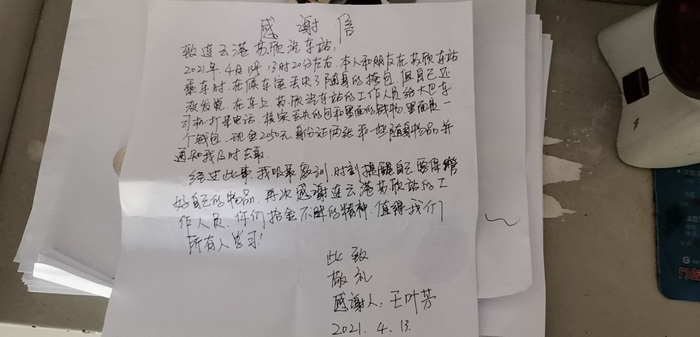 感谢信
致连云港苏欣汽车站:
2021年4月1号13时20分左右,本人和朋友在苏欣车站
乘车时,在候车室丢失了随身的挎包,但自己还
没发觉,在车上苏欣汽车站的工作人员给大巴车
司机打来电话,核实丢失的包和里面的钱物,里面是一
个钱包,现金2050元,身份证两张和一些随身物品,并
通知我及时去取.
经过此事,我吸取教训,时刻提醒自己要保管
好自己的物品,再次感谢连云港苏欣站的工
作人员,你们拾金不昧的精神,值得我们
所有人学习!
此致
敬礼
感谢人:王叶芳
2021.4.13.